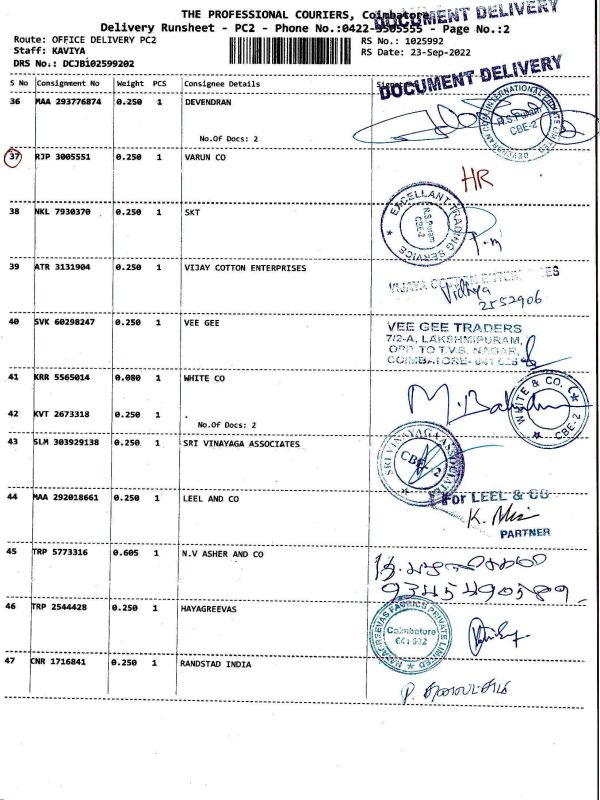 THE PROFESSIONAL COURIERS, Coimbatore
DOCUMENT DELIVERY
Delivery Runsheet - PC2 - Phone No.:0422-3505555 - Page No.:2
Route: OFFICE DELIVERY PC2
RS No.: 1025992
Staff: KAVIYA
RS Date: 23-Sep-2022
DRS No.: DCJB102599202
DOCUMENT DELIVERY
S No Consignment No Weight PCS Consignee Details
36 MAA 293776874 0.250 1 DEVENDRAN
No.Of Docs: 2
R.S.Puram
CBE-2
37 RJP 3005551 0.250 1 VARUN CO
HR
38 NKL 7930370 0.250 1 SKT
EXCELLANT TRADING SERVICE
R.S.Puram
CBE-2
39 ATR 3131904 0.250 1 VIJAY COTTON ENTERPRISES
Vidhya
2552906
40 SVK 60298247 0.250 1 VEE GEE
VEE GEE TRADERS
7/2-A, LAKSHMIPURAM,
OPP TO T.V.S. NAGAR,
COIMBATORE-
41 KRR 5565014 0.080 1 WHITE CO
WHITE & CO.
CBE-2
42 KVT 2673318 0.250 1 .
No.Of Docs: 2
43 SLM 303929138 0.250 1 SRI VINAYAGA ASSOCIATES
SRI VINAYAGA ASSOCIATES
CBE-2
44 MAA 292018661 0.250 1 LEEL AND CO
For LEEL & CO
PARTNER
45 TRP 5773316 0.605 1 N.V ASHER AND CO
46 TRP 2544428 0.250 1 HAYAGREEVAS
HAYAGREEVAS FABRICS PRIVATE LIMITED
Coimbatore
641 002
47 CNR 1716841 0.250 1 RANDSTAD INDIA